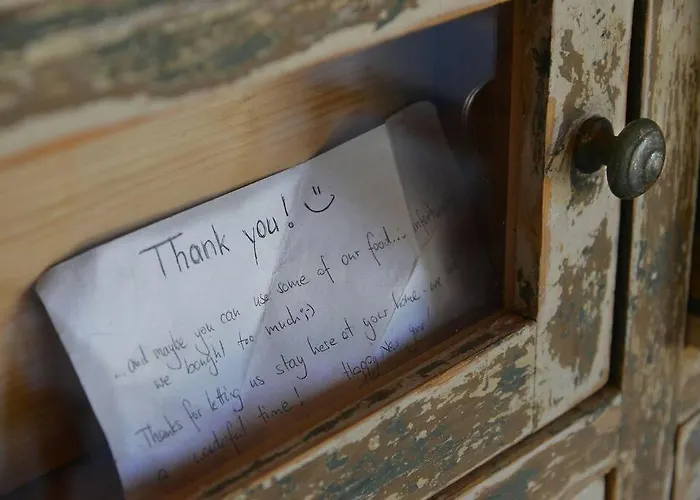 Thank you! :)
...and maybe you can use some of our food...
we bought too much ;)
Thanks for letting us stay here at your home - we
a wonderful time! Happy New year!